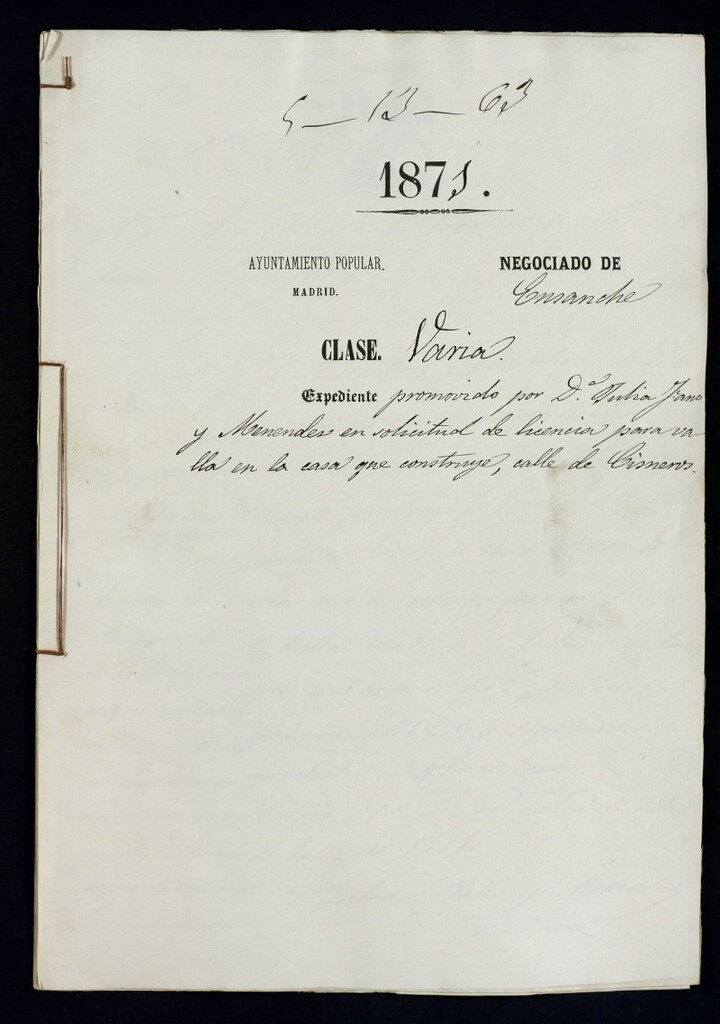 5 — 13 — 63
1871.
AYUNTAMIENTO POPULAR.
MADRID.
NEGOCIADO DE
Ensanche
CLASE. Varia.
Expediente promovido por D.ª Julia Fano
y Menendez en solicitud de licencia para va-
lla en la casa que construye, calle de Cisneros.